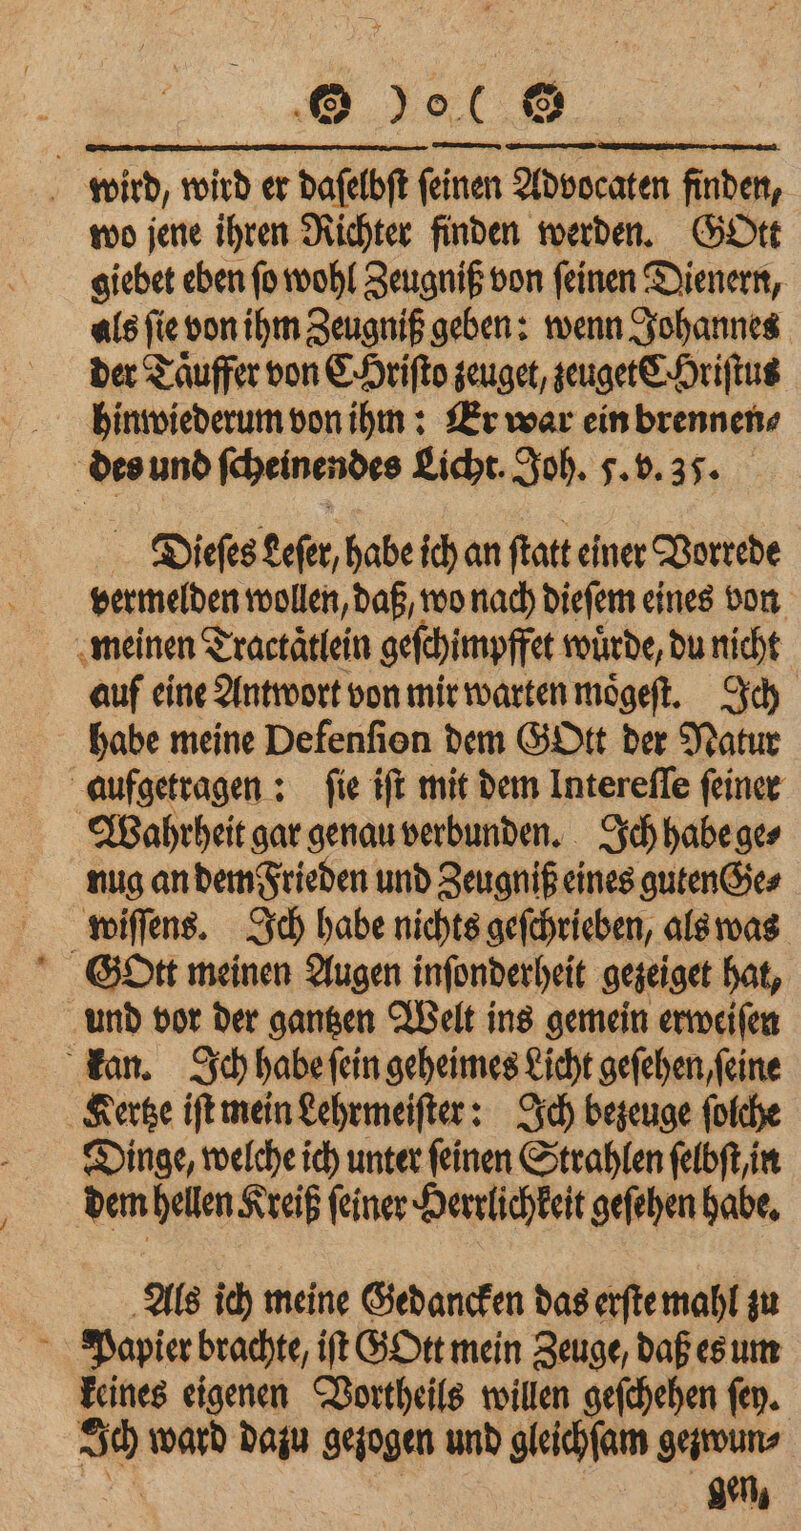 ) o (
wird, wird er daſelbſt ſeinen Advocaten finden,
wo jene ihren Richter finden werden. GOtt
giebet eben ſo wohl Zeugniß von ſeinen Dienern,
als ſie von ihm Zeugniß geben: wenn Johannes
der Taͤuffer von CHriſto zeuget, zeuget CHriſtus
hinwiederum von ihm: Er war ein brennen⸗
des und ſcheinendes Licht. Joh. 5. v. 35.
Dieſes Leſer, habe ich an ſtatt einer Vorrede
vermelden wollen, daß, wo nach dieſem eines von
meinen Tractaͤtlein geſchimpffet wuͤrde, du nicht
auf eine Antwort von mir warten moͤgeſt. Ich
habe meine Defenſion dem GOtt der Natur
aufgetragen: ſie iſt mit dem Intereſſe ſeiner
Wahrheit gar genau verbunden. Ich habe ge⸗
nug an dem Frieden und Zeugniß eines guten Ge⸗
wiſſens. Ich habe nichts geſchrieben, als was
GOtt meinen Augen inſonderheit gezeiget hat,
und vor der gantzen Welt ins gemein erweiſen
kan. Ich habe ſein geheimes Licht geſehen, ſeine
Kertze iſt mein Lehrmeiſter: Ich bezeuge ſolche
Dinge, welche ich unter ſeinen Strahlen ſelbſt, in
dem hellen Kreiß ſeiner Herrlichkeit geſehen habe.
Als ich meine Gedancken das erſte mahl zu
Papier brachte, iſt GOtt mein Zeuge, daß es um
keines eigenen Vortheils willen geſchehen ſey.
Ich ward dazu gezogen und gleichſam gezwun⸗
gen,